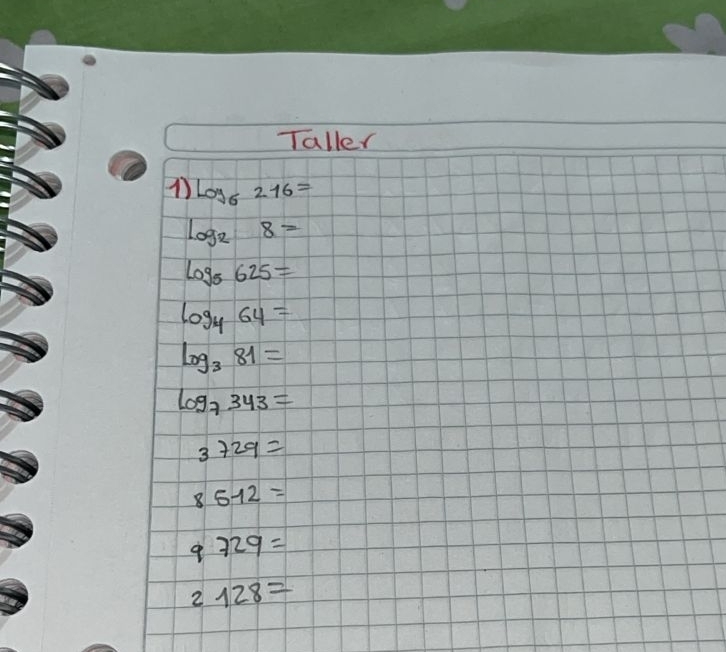 Taller
1) Log₆ 216=
Log₂ 8=
Log₅ 625=
log₄ 64=
Log₃ 81=
log₇ 343=
3 729=
8 512=
9 729=
2 128=